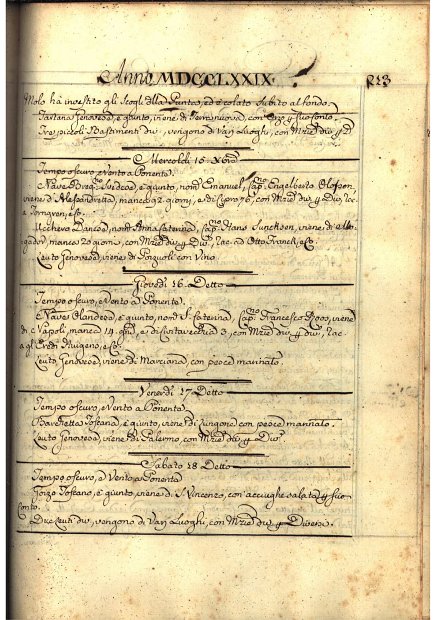 Anno MDCCLXXIX.
Molo hà investito gli Scogli della Punta, ed è colato Subito al fondo.
Tartana Genovesa, è giunto, viene di Terranuova, con Grano p suo conto.
Tre piccoli Bastimenti div, vengono di Varj Luoghi, con Mrzie div p D
Mercoldì 15 Nov
Tempo oscuro, e Vento a Ponente.
Nave Svedese, è giunto, nom Emanuel, Cap Engelberto Olofsen,
viene di Alessandretta, manca 92 giorni, e di Cipro 76, con Mrzie div p Div, Rac
a Tornqren, e Co.
Danese, nom Anna Caterina, Cap Hans Juncksen, viene di Mo
gador, manca 20 giorni, con Mrzie div p Div, Rac a Otto Franck, e Co
Leuto Genovese, viene di Pozzuoli con Vino
Giovedì 16 Detto
Tempo oscuro, e Vento a Ponente.
Nave Olandese, è giunto, nom S. Caterina, Cap Francesco viene
di Napoli, manca 14 g, e di Civitavecchia 3, con Mrzie div p div, Rac
a gli Eredi e Co.
Leuto Genovese, viene di Marciana, con pesce marinato.
Venerdì 17 Detto
Tempo oscuro, e Vento a Ponente
Toscana, è giunto, viene di con pesce marinato.
Leuto Genovese, viene di Palermo, con Mrzie div, p Div
Sabato 18 Detto
Tempo oscuro, e Vento a Ponente
Gozzo Toscano, è giunto, viene di S. Vincenzo, con acciughe salate p suo
Conto.
Due Leuti div, vengono di Varj Luoghi, con Mrzie div p Diversi